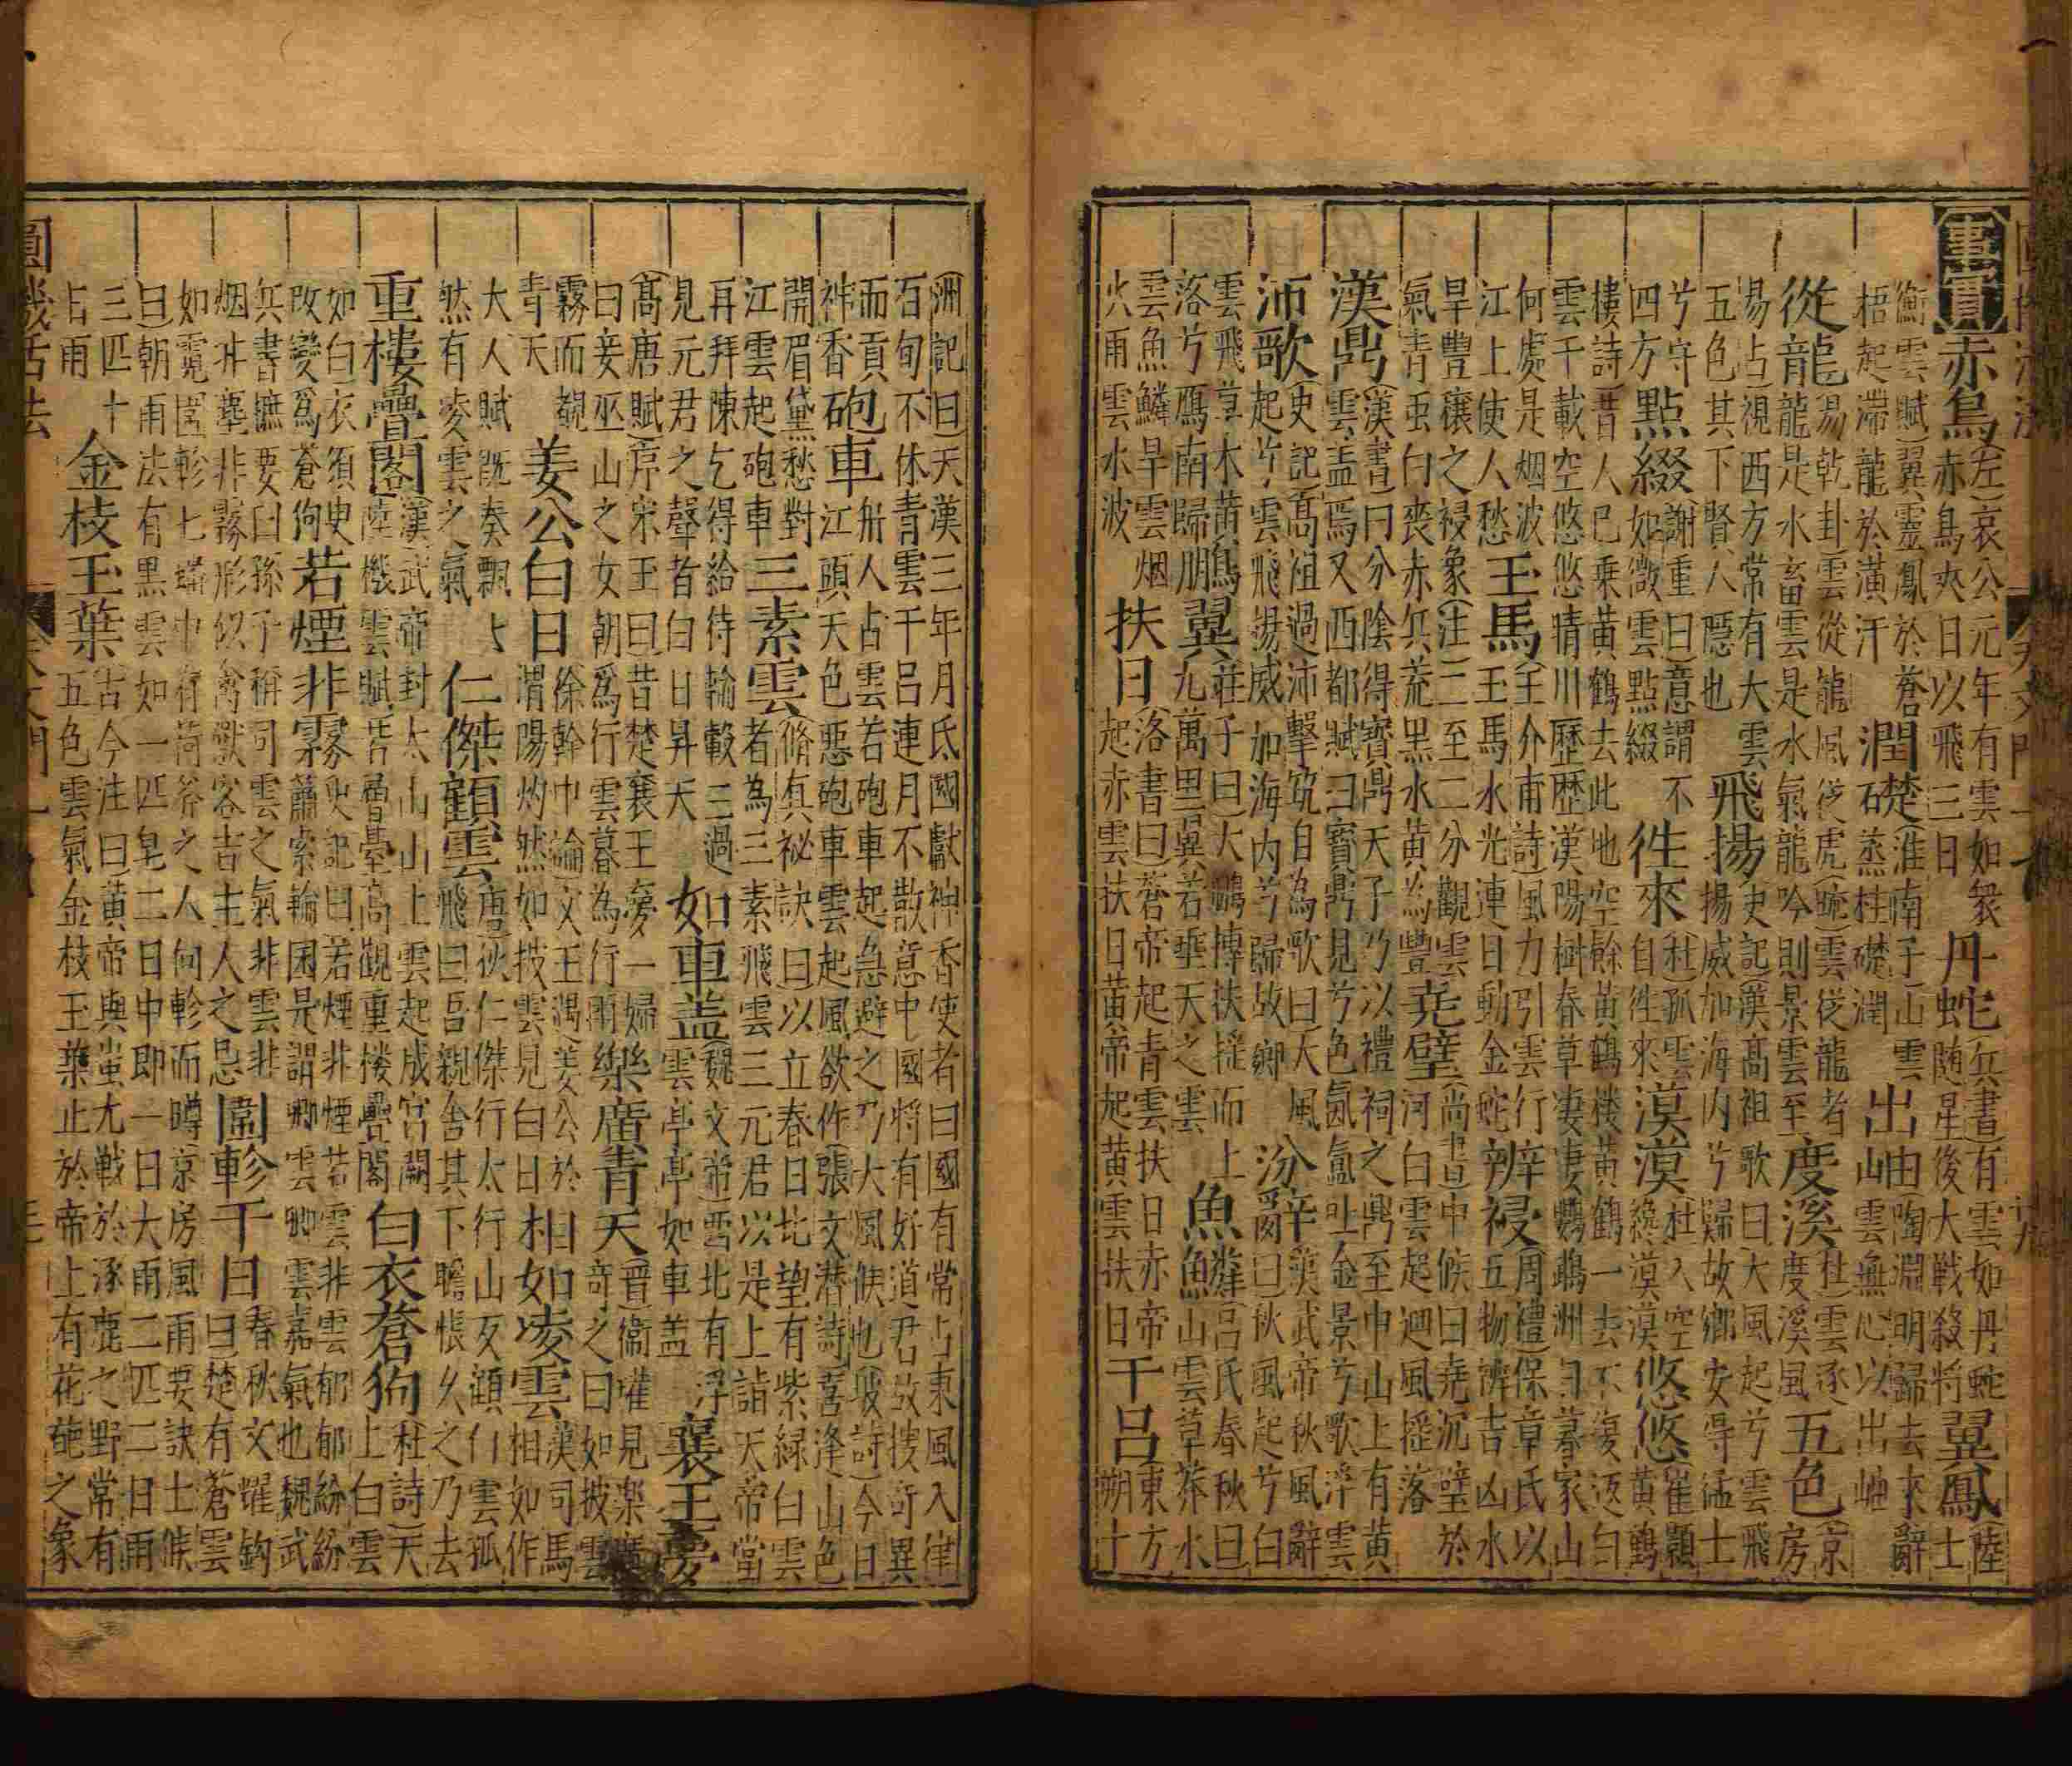 事實 赤烏 (左)哀公元年有雲如衆赤烏夾日以飛三日 丹蛇 (兵書)有雲如丹蛇随星後大戰殺將 翼鳳 陸士
衡雲賦)翼靈鳳於蒼梧起滯龍於潢汙 潤礎 (淮南子)山雲蒸柱礎潤 出岫 (陶淵明歸去來辭雲無心以出岫
從龍 (易乾卦)雲從龍風従虎(䟽)雲従龍者龍是水畜雲是水氣龍吟則景雲至 度溪 (杜)雲逐度溪風 五色 (京房
易占)視西方常有大雲五色其下賢人隱也 飛揚 史記)漢髙祖歌曰大風起兮雲飛揚威加海内兮歸故鄉安得猛士
兮守四方 點綴 (謝重曰)意謂不如微雲點綴 徃來 (杜)孤雲自徃來 漠漠 (杜)入空纔漠漠 悠悠 (崔顥黄鶴
樓詩)昔人已乗黄鶴去此地空餘黄鶴楼黄鶴一去不復返白雲千載空悠悠晴川歷歴漢陽樹春草凄凄鸚鵡洲日暮家山
何處是烟波江上使人愁 玉馬 (王介甫詩)風力引雲行玉馬水光連日動金蛇 辨祲 (周禮)保章氏以五物辨吉凶水
旱豐穰之祲象(注)二至二分觀雲氣青虫白喪赤兵荒黒水黄為豐 堯璧 (尚書中候曰堯沉璧於河白雲起迴風摇落
漢鼎 (漢書)曰分隂得寳鼎天子乃以禮祠之鼎至中山上有黄雲盖焉又西都賦曰寳鼎見兮色氤氳吐金景兮歌浮雲
沛歌 (史記)髙祖過沛擊筑自為歌曰大風起兮雲飛揚威加海内兮歸故鄉 汾辭 漢武帝秋風辭曰秋風起兮白
雲飛草木黄落兮鴈南歸 鵬翼 莊子曰大鵬摶扶摇而上九萬里翼若垂天之雲 魚鱗 吕氏春秋曰山雲草莽水
雲魚鱗旱雲烟火雨雲水波 扶日 洛書曰蒼帝起青雲扶日赤帝起赤雲扶日黄帝起黄雲扶日 干吕 東方朔十
(洲記曰)天漢三年月氏國獻神香使者曰國有常占東風入律百旬不休青雲干吕連月不散意中國将有好道君故搜奇異
而貢神香 砲車 江舟人占雲若砲車起急避之乃大風候也(坡詩)今日江頭天色惡砲車雲起風欲作(張文潜詩)喜逢山色
開眉黛愁對江雲起砲車 三素雲 (脩真祕訣曰以立春日北望有紫緑白雲者為三素飛雲三元君以是上詣天帝堂
再拜陳乞得給待輪轂三過見元君之聲者白日昇天 如車盖 (魏文帝西北有浮雲亭亭如車盖 襄王夢
(髙唐賦)序宋玉曰昔楚襄王夢一婦曰妾巫山之女朝爲行雲暮為行雨 樂廣青天 (晋)衛瓘見楽廣奇之曰如披雲
霧而覩青天 姜公白日 (徐幹中論)文王遇姜公於渭陽灼然如披雲見白日 相如凌雲 漢司馬相如作
大人賦既奏飄然有凌雲之氣 仁傑顧雲 (唐)狄仁傑行太行山反顧白雲孤飛曰吾親舍其下瞻悵久之乃去
重樓疊閣 (漢)武帝封太山山上雲起成宫闕(陸機雲賦)若層臺髙觀重楼疊閣 白衣蒼狗 (杜詩)天上白雲
如白衣須臾改變爲蒼狗 若煙非霧 史記曰若煙非煙若雲非雲郁郁紛紛蕭索輪囷是謂卿雲卿雲嘉氣也魏武
兵書摭要曰孫子稱司雲之氣非雲非烟非塵非霧形似禽獸客吉主人之忌 圍軫干日 春秋文耀鈎曰楚有蒼雲
如霓圍軫七蟠中有荷斧之人向軫而蹲京房風雨要訣士候曰朝雨法有黒雲如一匹皂二日中即一日大雨二匹二日雨
三匹十占雨 金枝玉葉 古今注曰黄帝與蚩尤戦於涿鹿之野常有五色雲氣金枝玉葉止於帝上有花葩之象
圓機活法 天文門一